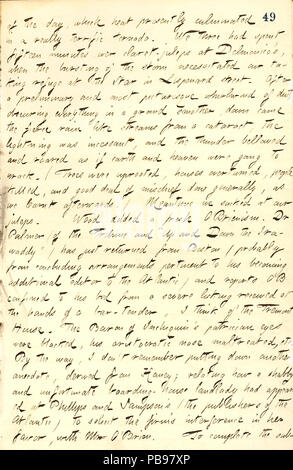 49
of the day which heat presently culminated
in a really terrific tornado. We three had spent
fifteen minutes over claret-juleps at Delmonico's,
when the bursting of the storm necessitated our ta-
king refuge at Ostar in Leonard street. After
a preliminary and most picturesque whirlwind of dust
obscuring everything in a ground smother down came
the fierce rain like streams from a cataract, the
lightning was incessant, and the thunder bellowed
and roared as if earth and heaven were going to
wrack. Trees were uprooted, houses overturned, people
killed, and good deal of mischief done generally, as
we learnt afterwards. Meantime we sucked at our
juleps. Wood added a fresh O'Brienism. Dr
Palmer (of the Tribune and Up and Down the Ira-
waddy) has just returned from Boston (probably
from concluding arrangements pertinent to his becoming
additional editor to the Atlantic), and reports O'B
confined to his bed from a severe licking received at
the hands of a bar-tender, I think of the Tremont
House. The Baron of Inchiquin's patrician eyes
were blacked, his aristocratic nose maltreated, etc.
By the way, I don't remember putting down another
anecdote, derived from Haney; relating how a shabby
and unfortunate boarding-house landlady had appear-
ed at Phillips and Sampson's (the publishers of the
Atlantic) to solicit the firm's interference in her
favor, with Mr O'Brien. To complete the
alamy
PB97XP